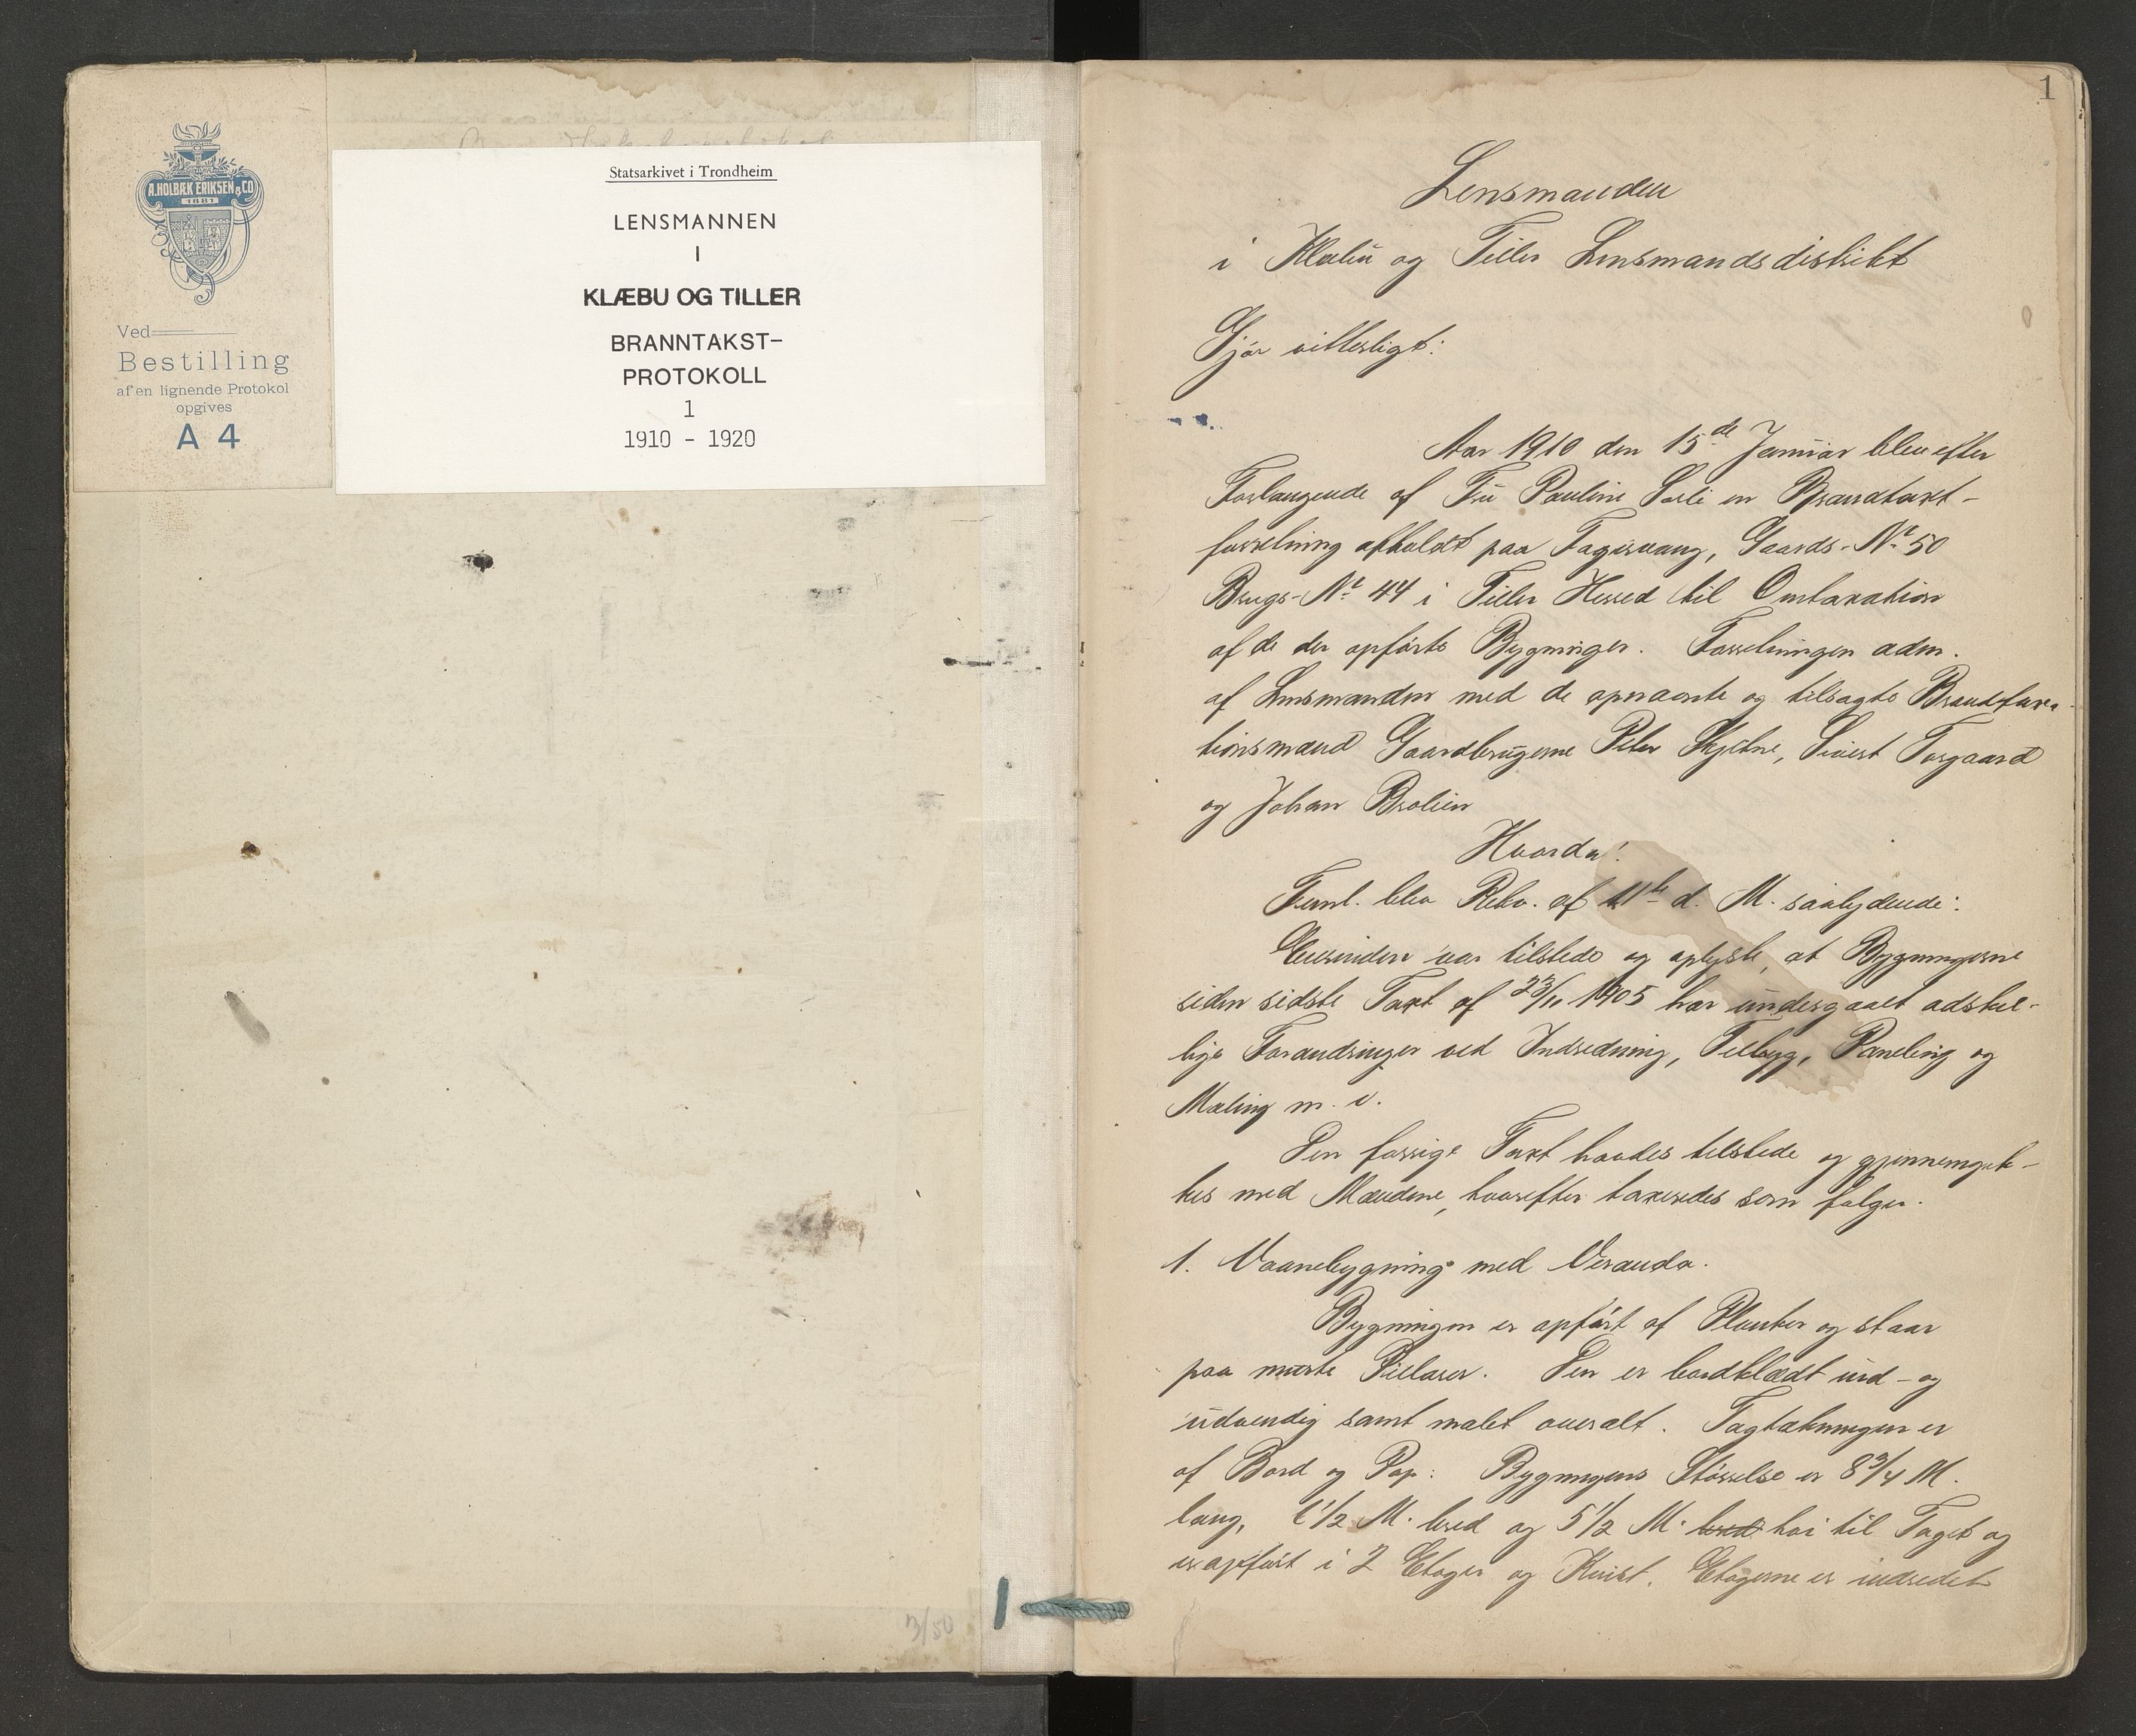 A. HOLBÆK ERIKSEN & CO
1881
Ved
Bestilling
af en lignende Protokol
opgives
A 4
Statsarkivet i Trondheim
LENSMANNEN
I
KLÆBU OG TILLER
BRANNTAKST-
PROTOKOLL
1
1910 - 1920
3/50
1
Lensmanden
i Klæbu og Tiller Lensmandsdistrikt
Gjør vitterligt:
Aar 1910 den 15de Januar blev efter
Forlangende af Fru Pauline Sorli en Brandtaxt-
forretning afholdt paa Fagervang, Gaards-Nr 50
Brugs-Nr 44 i Tiller Herred til Omtaxation
af de der opførte Bygninger. Forretningen adm.
af Lensmanden med de opnævnte og tilsagte Brandtaxa-
tionsmænd Gaardbrugerne Peter Skjetne, Sivert Torgaard
og Johan Brolien
Hvorda!
Freml. blev Rekv. af 11te d. M. saalydende:
Eierinden var tilstede og oplyste, at Bygningerne
siden sidste Taxt af 23/11 1905 har undergaaet adskil-
lige Forandringer ved Indredning, Tilbyg, Paneling og
Maling m. v.
Den forrige Taxt havdes tilstede og gjennemgik-
kes med Mændene, hvorefter taxeredes som følger.
1. Vaanebygning med Veranda.
Bygningen er opført af Planker og staar
paa murte Pillarer. Den er bordklædt ind- og
udvendig samt malet overalt. Tagtækningen er
af Bord og Pap: Bygningens Størrelse er 8 3/4 M.
lang, 6 1/2 M. bred og 5 1/2 M. bred høi til Taget og
er opført i 2 Etager og Kvist. Etagerne er indredet